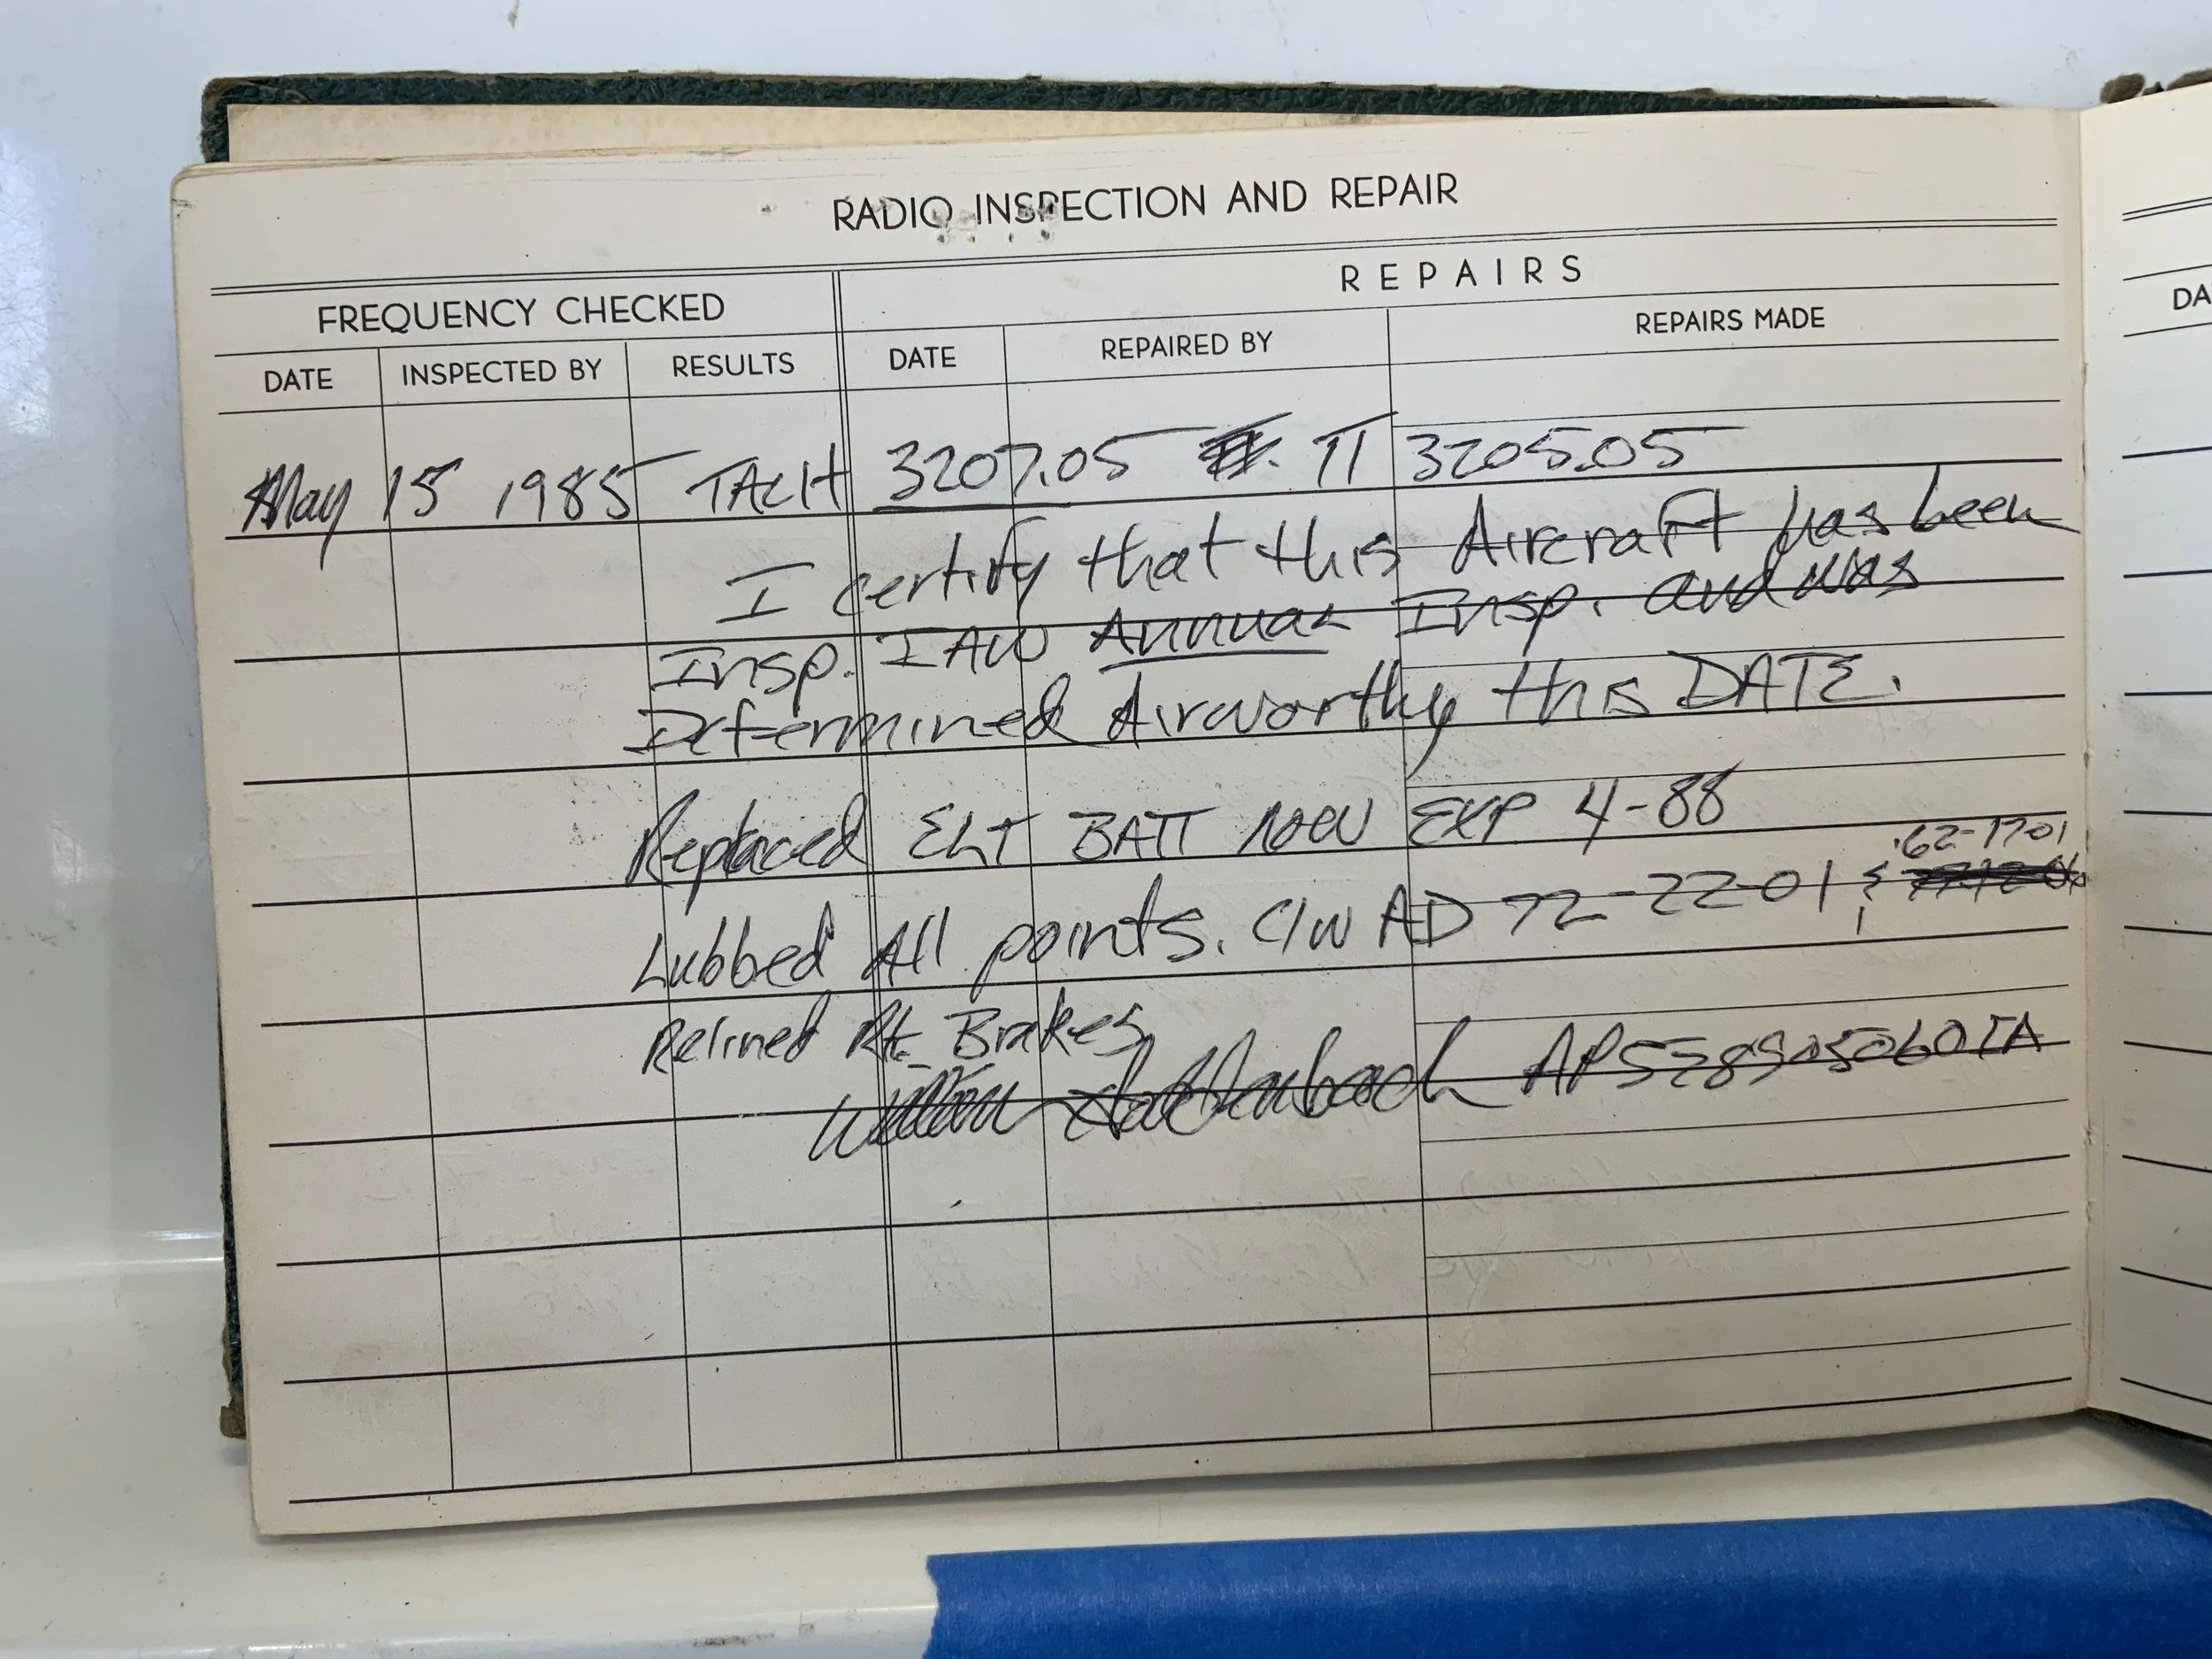 RADIO INSPECTION AND REPAIR
FREQUENCY CHECKED
REPAIRS
DATE INSPECTED BY RESULTS DATE REPAIRED BY REPAIRS MADE
DA
May 15 1985 TACH 3207.05 TT 3205.05
I certify that this Aircraft has been
Insp. IAW Annual Insp. and was
Determined Airworthy this DATE.
Replaced ELT BATT NOW EXP 4-88
62-17-01
Lubbed All points. C/W AD 72-22-01 &
Relined Rt. Brakes
William